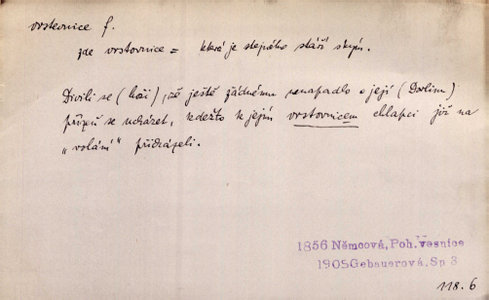 vrstevnice f.
zde vrstovnice = která je stejného stáří skup.
Divili se (hoši), že ještě žádnému nenapadlo o její (Dorlinu)
přízeň se ucházet, kdežto k jejím vrstovnicem chlapci již na
„volání“ přicházeli.
1856 Němcová, Poh. vesnice
1905 Gebauerová. Sp 3
118. 6